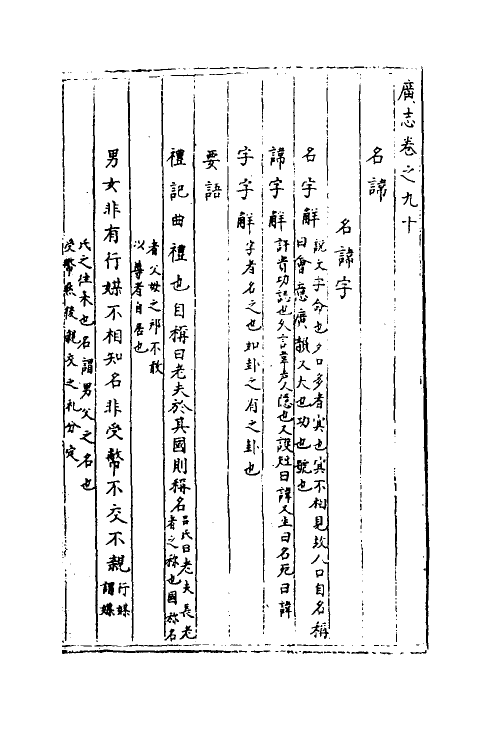 廣志卷之九十
名諱
名諱字
名字解
說文字命也夕口多者冥也冥不相見故人口自名稱
曰會意廣韻又大也功也號也
諱字解
許貴切誌也久言韋声人隐也又設曰諱又生曰名死曰諱
字字解
字者名之也如卦之有之卦也
要語
禮記曲禮也自稱曰老夫於其國則稱名
呂氏曰老夫長老
者之称也國称名
者父母之邦不敢
以尊者自居也
男女非有行媒不相知名非受幣不交不親
行媒
謂媒
氏之往来也名謂男父之名也
受幣然後親交之礼分定